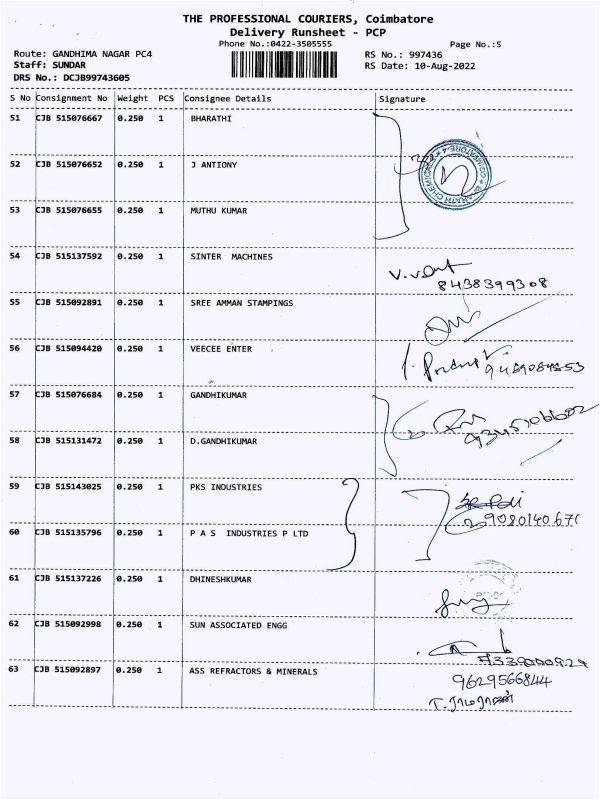 THE PROFESSIONAL COURIERS, Coimbatore
Delivery Runsheet - PCP
Phone No.:0422-3505555
Page No.:5
Route: GANDHIMA NAGAR PC4
RS No.: 997436
Staff: SUNDAR
RS Date: 10-Aug-2022
DRS No.: DCJB99743605
S No Consignment No Weight PCS Consignee Details Signature
51 CJB 515076667 0.250 1 BHARATHI
52 CJB 515076652 0.250 1 J ANTIONY
53 CJB 515076655 0.250 1 MUTHU KUMAR
54 CJB 515137592 0.250 1 SINTER MACHINES
8438399308
55 CJB 515092891 0.250 1 SREE AMMAN STAMPINGS
56 CJB 515094420 0.250 1 VEECEE ENTER
57 CJB 515076684 0.250 1 GANDHIKUMAR
58 CJB 515131472 0.250 1 D.GANDHIKUMAR
59 CJB 515143025 0.250 1 PKS INDUSTRIES
60 CJB 515135796 0.250 1 P A S INDUSTRIES P LTD
61 CJB 515137226 0.250 1 DHINESHKUMAR
62 CJB 515092998 0.250 1 SUN ASSOCIATED ENGG
63 CJB 515092897 0.250 1 ASS REFRACTORS & MINERALS
9629566844